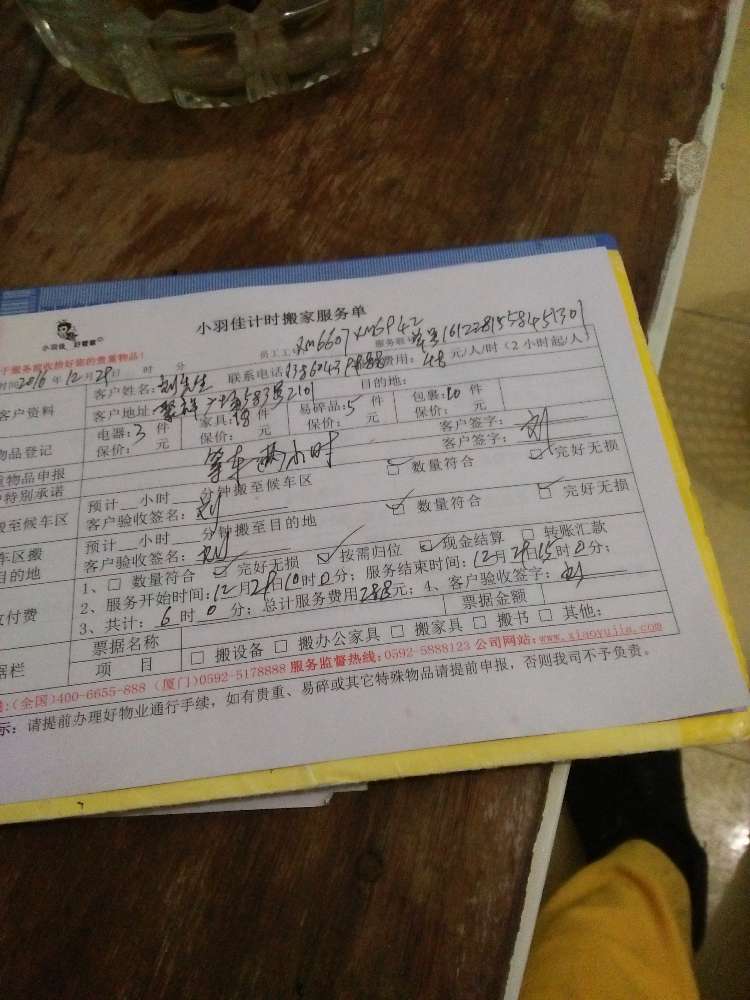 小羽佳计时搬家服务单
小羽佳 好管家
于服务前收拾好您的贵重物品!
员工工 XM6607 XM6942 服务联 单号1612281558451301
时间2016年12月29日 时 分
客户资料 客户姓名:刘先生 联系电话 费用:48元/人/时(2小时起/人)
客户地址: 583号2101 目的地:
物品登记 电器:3件 家具:18件 易碎品:5件 包裹:10件
保价: 元 保价: 元 保价: 元 保价: 元
重物品申报 客户签字:
特别承诺 等车两小时 客户签字:刘
搬至候车区 预计 小时 分钟搬至候车区 数量符合 完好无损
客户验收签名:刘
车区搬 预计 小时 分钟搬至目的地 数量符合 完好无损
目的地 客户验收签名:刘
付费 1、 数量符合 完好无损 按需归位 现金结算 转账汇款
2、服务开始时间:12月29日10时0分;服务结束时间:12月29日15时0分;
3、共计:6时0分;总计服务费用288元;4、客户验收签字:刘
据栏 票据名称 票据金额
项 目 搬设备 搬办公家具 搬家具 搬书 其他:
:(全国)400-6655-888 (厦门)0592-5178888 服务监督热线:0592-5888123 公司网站:www.xiaoyujia.com
示:请提前办理好物业通行手续,如有贵重、易碎或其它特殊物品请提前申报,否则我司不予负责。